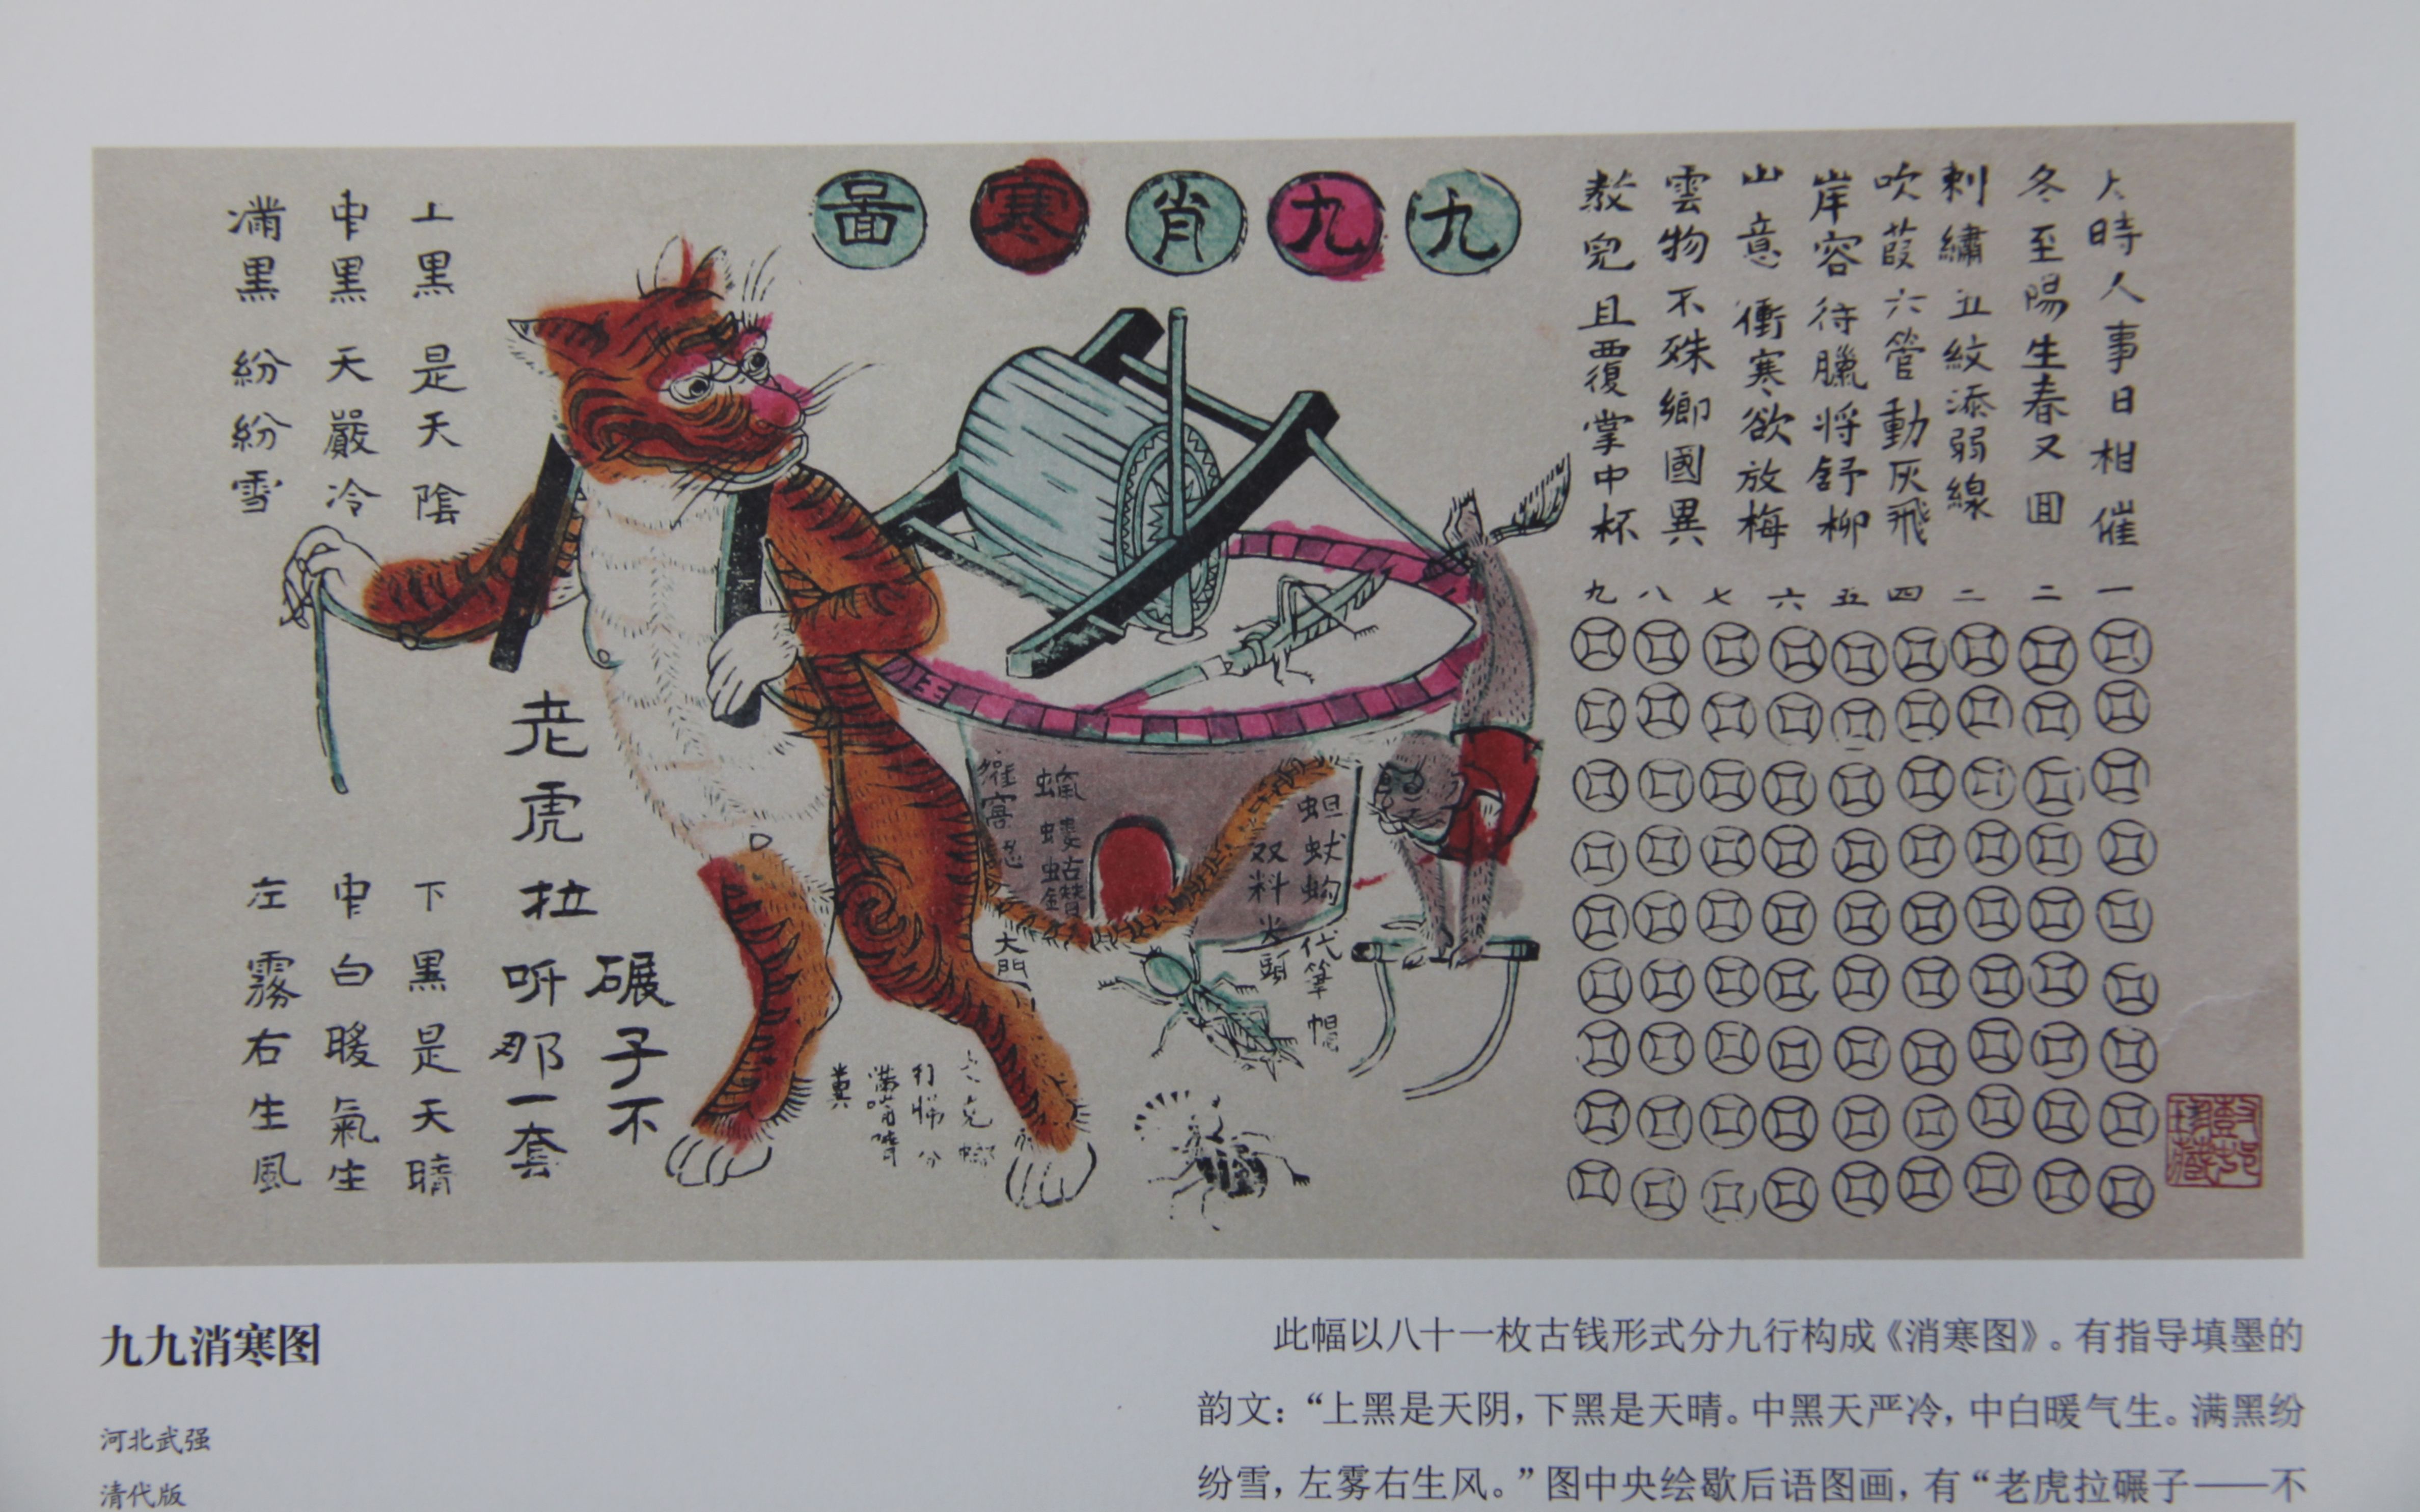 九九肖寒啚
天時人事日相催
冬至陽生春又囬
刺繡五紋添弱線
吹葭六管動灰飛
岸容待臘將舒柳
山意衝寒欲放梅
雲物不殊鄉國異
教兒且覆掌中杯
一 二 三 四 五 六 七 八 九
上黑是天陰
中黑天嚴冷
滿黑紛紛雪
下黑是天晴
中白暖氣生
左霧右生風
老虎拉
碾子不
听那一套
代筆帽
双料火頭
大門
九九消寒图
河北武强
清代版
此幅以八十一枚古钱形式分九行构成《消寒图》。有指导填墨的
韵文：“上黑是天阴，下黑是天晴。中黑天严冷，中白暖气生。满黑纷
纷雪，左雾右生风。”图中央绘歇后语图画，有“老虎拉碾子——不